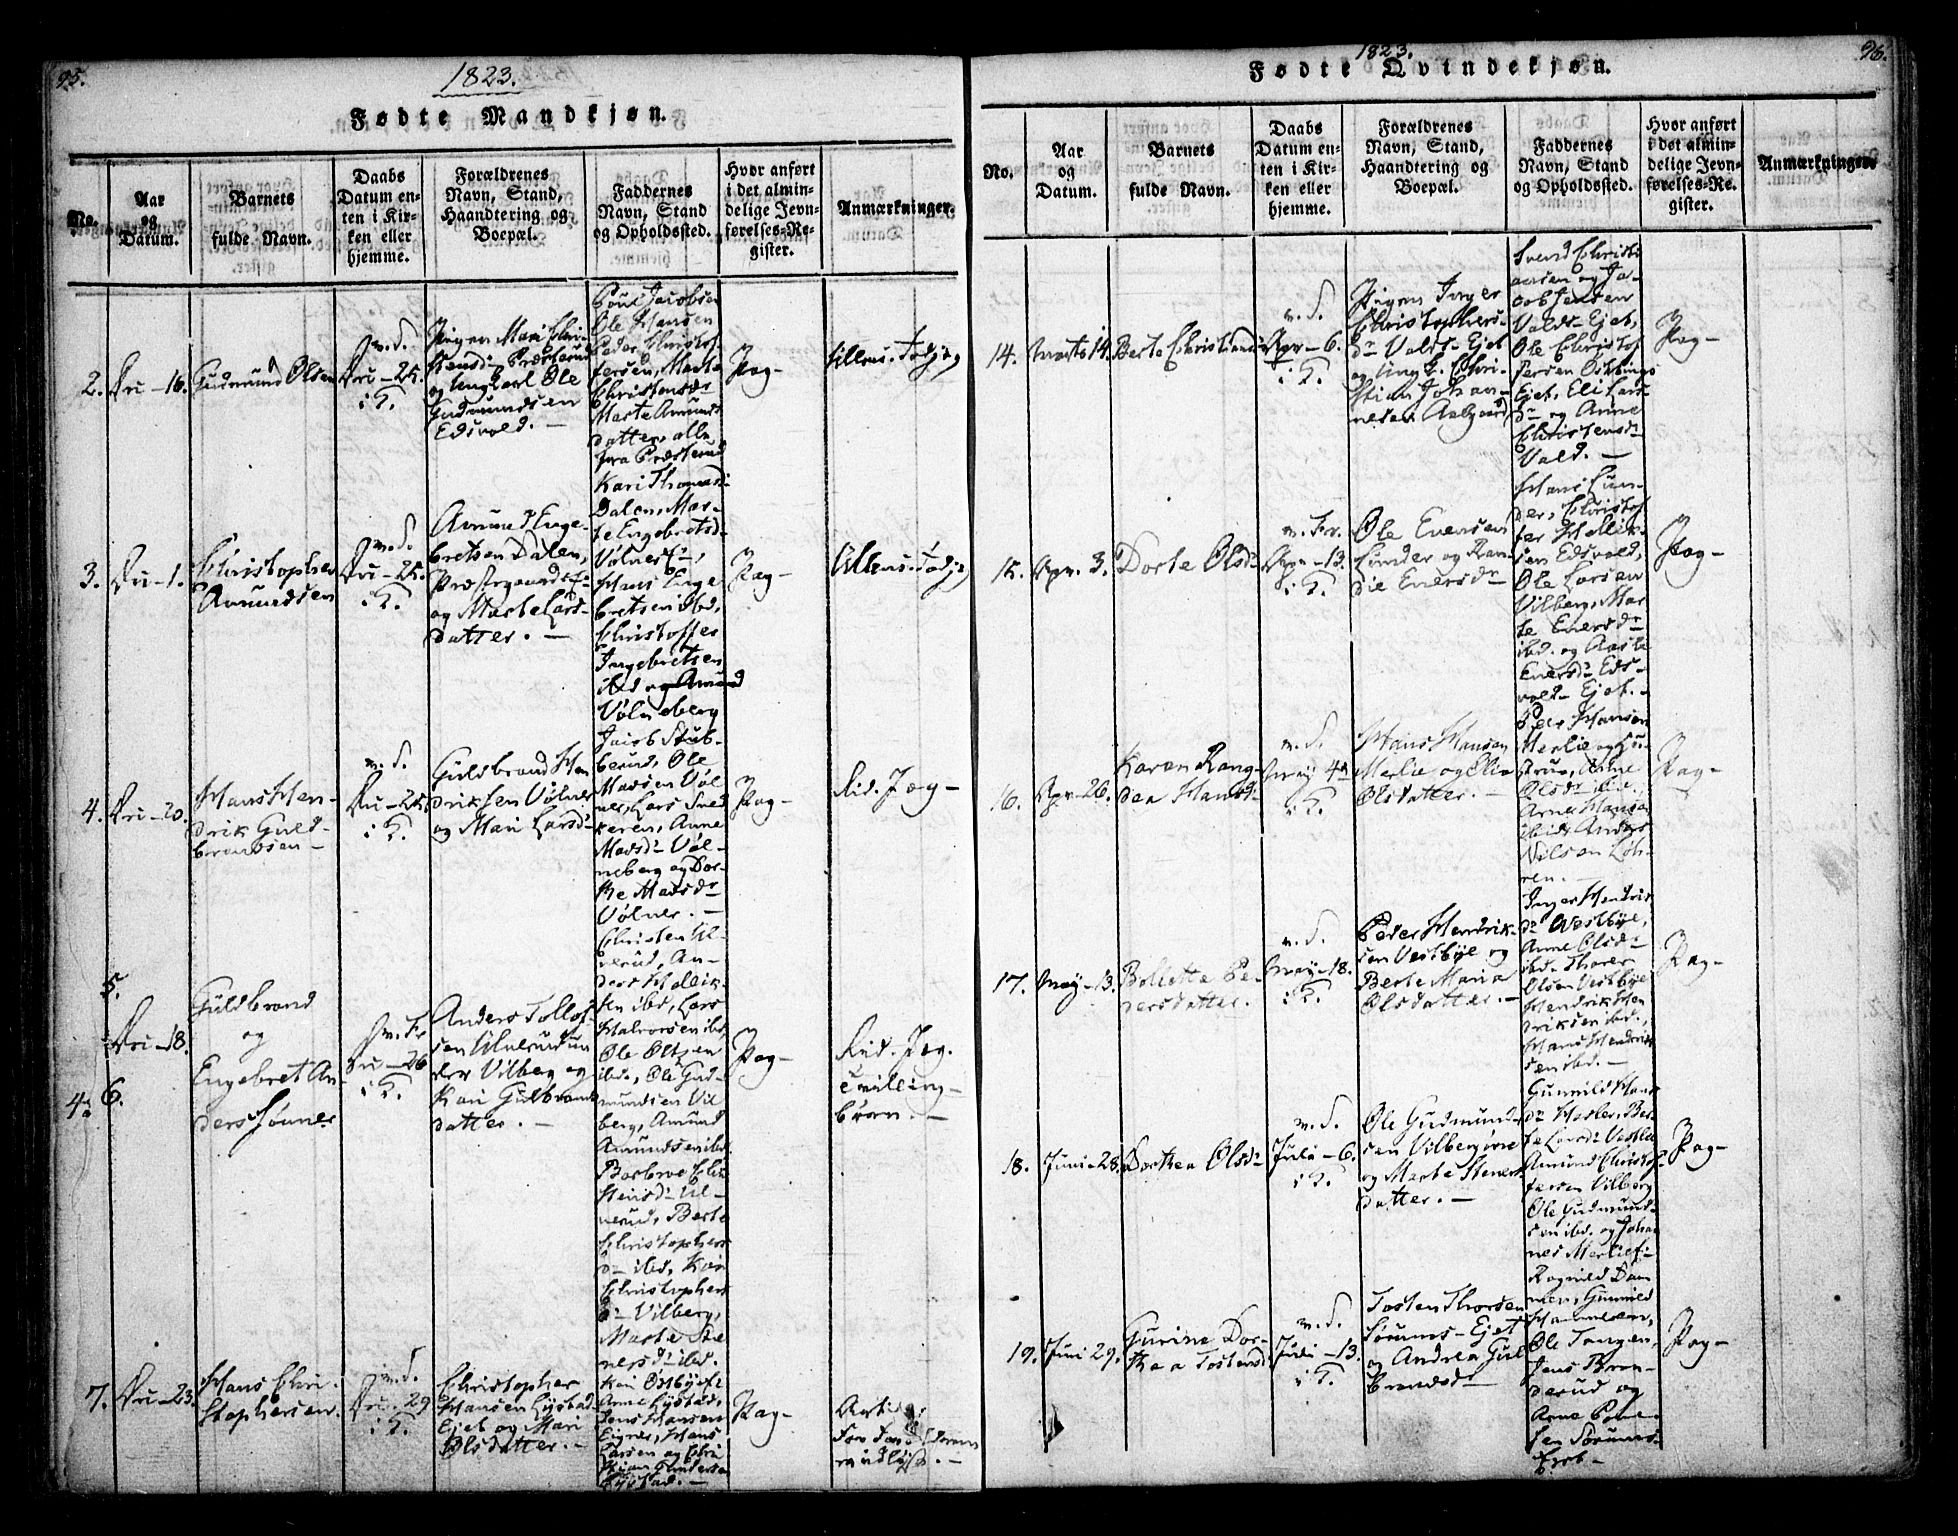 95.
1823.
Fødte Mandkjøn.
No.
Aar
og
Datum.
Barnets
fulde Navn.
Daabs
Datum en-
ten i Kir-
ken eller
hjemme.
Forældrenes
Navn, Stand,
Haandtering og
Boepæl.
Faddernes
Navn, Stand
og Opholdssted.
Hvor anført
i det almin-
delige Jevn-
førelses-Re-
gister.
Anmærkninger.
2.
16.
Gudmund Olsen
25.
i K.
Pigen Mari Chri-
stensdr Præsterud
og Ungkarl Ole
Gudmundsen
Edsvold. —
Poul Jacobsen
Ole Hansen
Peder Christof-
fersen, Marte
Christensdr
Marte Amunds
datter, alle
fra Præsterud
Pag-
3.
1.
Christopher
Amundsen
25.
i K.
Amund Enge-
bretsen Dalen,
og Marte Lars-
datter. —
Kari Thomasdr
Dalen, Mar-
te Engebretsd
Hans Enge
bretsen ibd,
Christoffer
Ingebretsen
ibd og Amund
Vølneberg
Pag-
4.
20.
Hans Hen-
drik Guld-
brandsen —
25.
i K.
Guldbrand Hen
driksen Vølner
og Mari Larsdr
Jacob Stub-
berud, Ole
Madsen Vøl
ner, Lars Sned
keren, Anne
Madsdr Vøl-
neberg og Dor-
the Madsdr
Vølner. —
Pag-
5.
6.
18.
Guldbrand
og
Engebret An
ders Sønner
26
i K.
Anders Tollef-
sen Ulverud un
der Vilberg og
Kari Guldbrands
datter. —
Christen Ul-
verud, An-
ders Hellik-
sen ibd, Lars
Halvorsen ibd,
Ole Olsen
ibd., Ole Gud-
mundsen Vil
berg, Amund
Amundsen ibd.
Barbroe Chri
stensdr Ul-
verud, Berte
Christophers
dr ibd, Kari
Christophers
dr Vilberg,
Marte Ste
nersdr ibd.
Pag-
tvilling-
børn. —
7.
23.
Hans Chri-
stophersen.
29
i K.
Christopher
Hansen Lystad
Ejet og Mari
Olsdatter. —
Kari Østbyejet
Anne Lystad,
Jens Hansen
Eigner, Hans
Larsen og Chri
stian Gundersen
Lystad. —
Pag-
1823.
96.
Fødte Qvindekjøn.
No.
Aar
og
Datum.
Barnets
fulde Navn.
Daabs
Datum en-
ten i Kir-
ken eller
hjemme.
Forældrenes
Navn, Stand,
Haandtering og
Boepæl.
Faddernes
Navn, Stand
og Opholdssted.
Hvor anført
i det almin-
delige Jevn-
førelses-Re-
gister.
Anmærkninger.
14.
Marts 14.
Berte Christiansdr
Apr — 6.
i K.
Pigen Inger
Christophers-
dr Valds-Ejet
og Ungk. Chri-
stian Johan-
nesen Aalgaard
Svend Christi
ansen og Ja-
cob Jensen
Valds-Ejet,
Ole Christof
fersen
Ejet, Eli Lars-
dr og Anne
Christensdr
Vald. —
Pag-
15.
Apr. 3.
Dorte Olsdr
Apr — 13.
i K.
Ole Evensen
Linder og Ran-
die Eversdr
Hans Lun-
der, Christof
fer Hellik-
sen Edsvold,
Ole Larsen
Vilberg, Mar
te Eversdr
ibd. og Aaste
Eversdr Eds-
vold-Ejet. —
Pag-
16.
Apr — 26.
Karen Rang-
dea Hansdr
May 4de
i K.
Hans Hansen
Merlie og Elie
Olsdatter. —
Peer Hansen
Merlie og Hu-
strue, Anne
Olsdr ibd.,
Arne Hansen
ibid. Anders
Nilsen Løh-
ren. —
Pag-
17.
May — 13.
Bolletta Pe-
dersdatter.
May — 18.
i K.
Peder Hendrik-
sen Vestbye og
Berte Maria
Olsdatter. —
Inger Hendriks
dr Westbye,
Anne Olsdr
ibd. Thorer
Olsen Vestbye
Hendrik Hen
driksen ibd.,
Hans Hendrik
sen ibd. —
Pag-
18.
Juni — 28.
Dorthea Olsdr
Julii — 6.
i K.
Ole Gudmund-
sen Vilberg øvre
og Marte Steners
datter. —
Gunnild Hans
dr Hasler, Ber-
te Larsdr Vestbye
Amund Christof-
fersen Vilberg
Ole Gudmund-
sen ibd. og Johan
nes Merliet —
Pag-
19.
Juni 29.
Gurine Dor-
thea Tostensdr
Julii — 13.
i K.
Tosten Thorsen
Sørums-Ejet
og Andrea Gul
brandsdr
Ragnild Dam
men, Gunnild
Ole Tangen,
Jens Bran-
derud og
Arne Poul-
sen Sørums-
Ejet —
Pag-